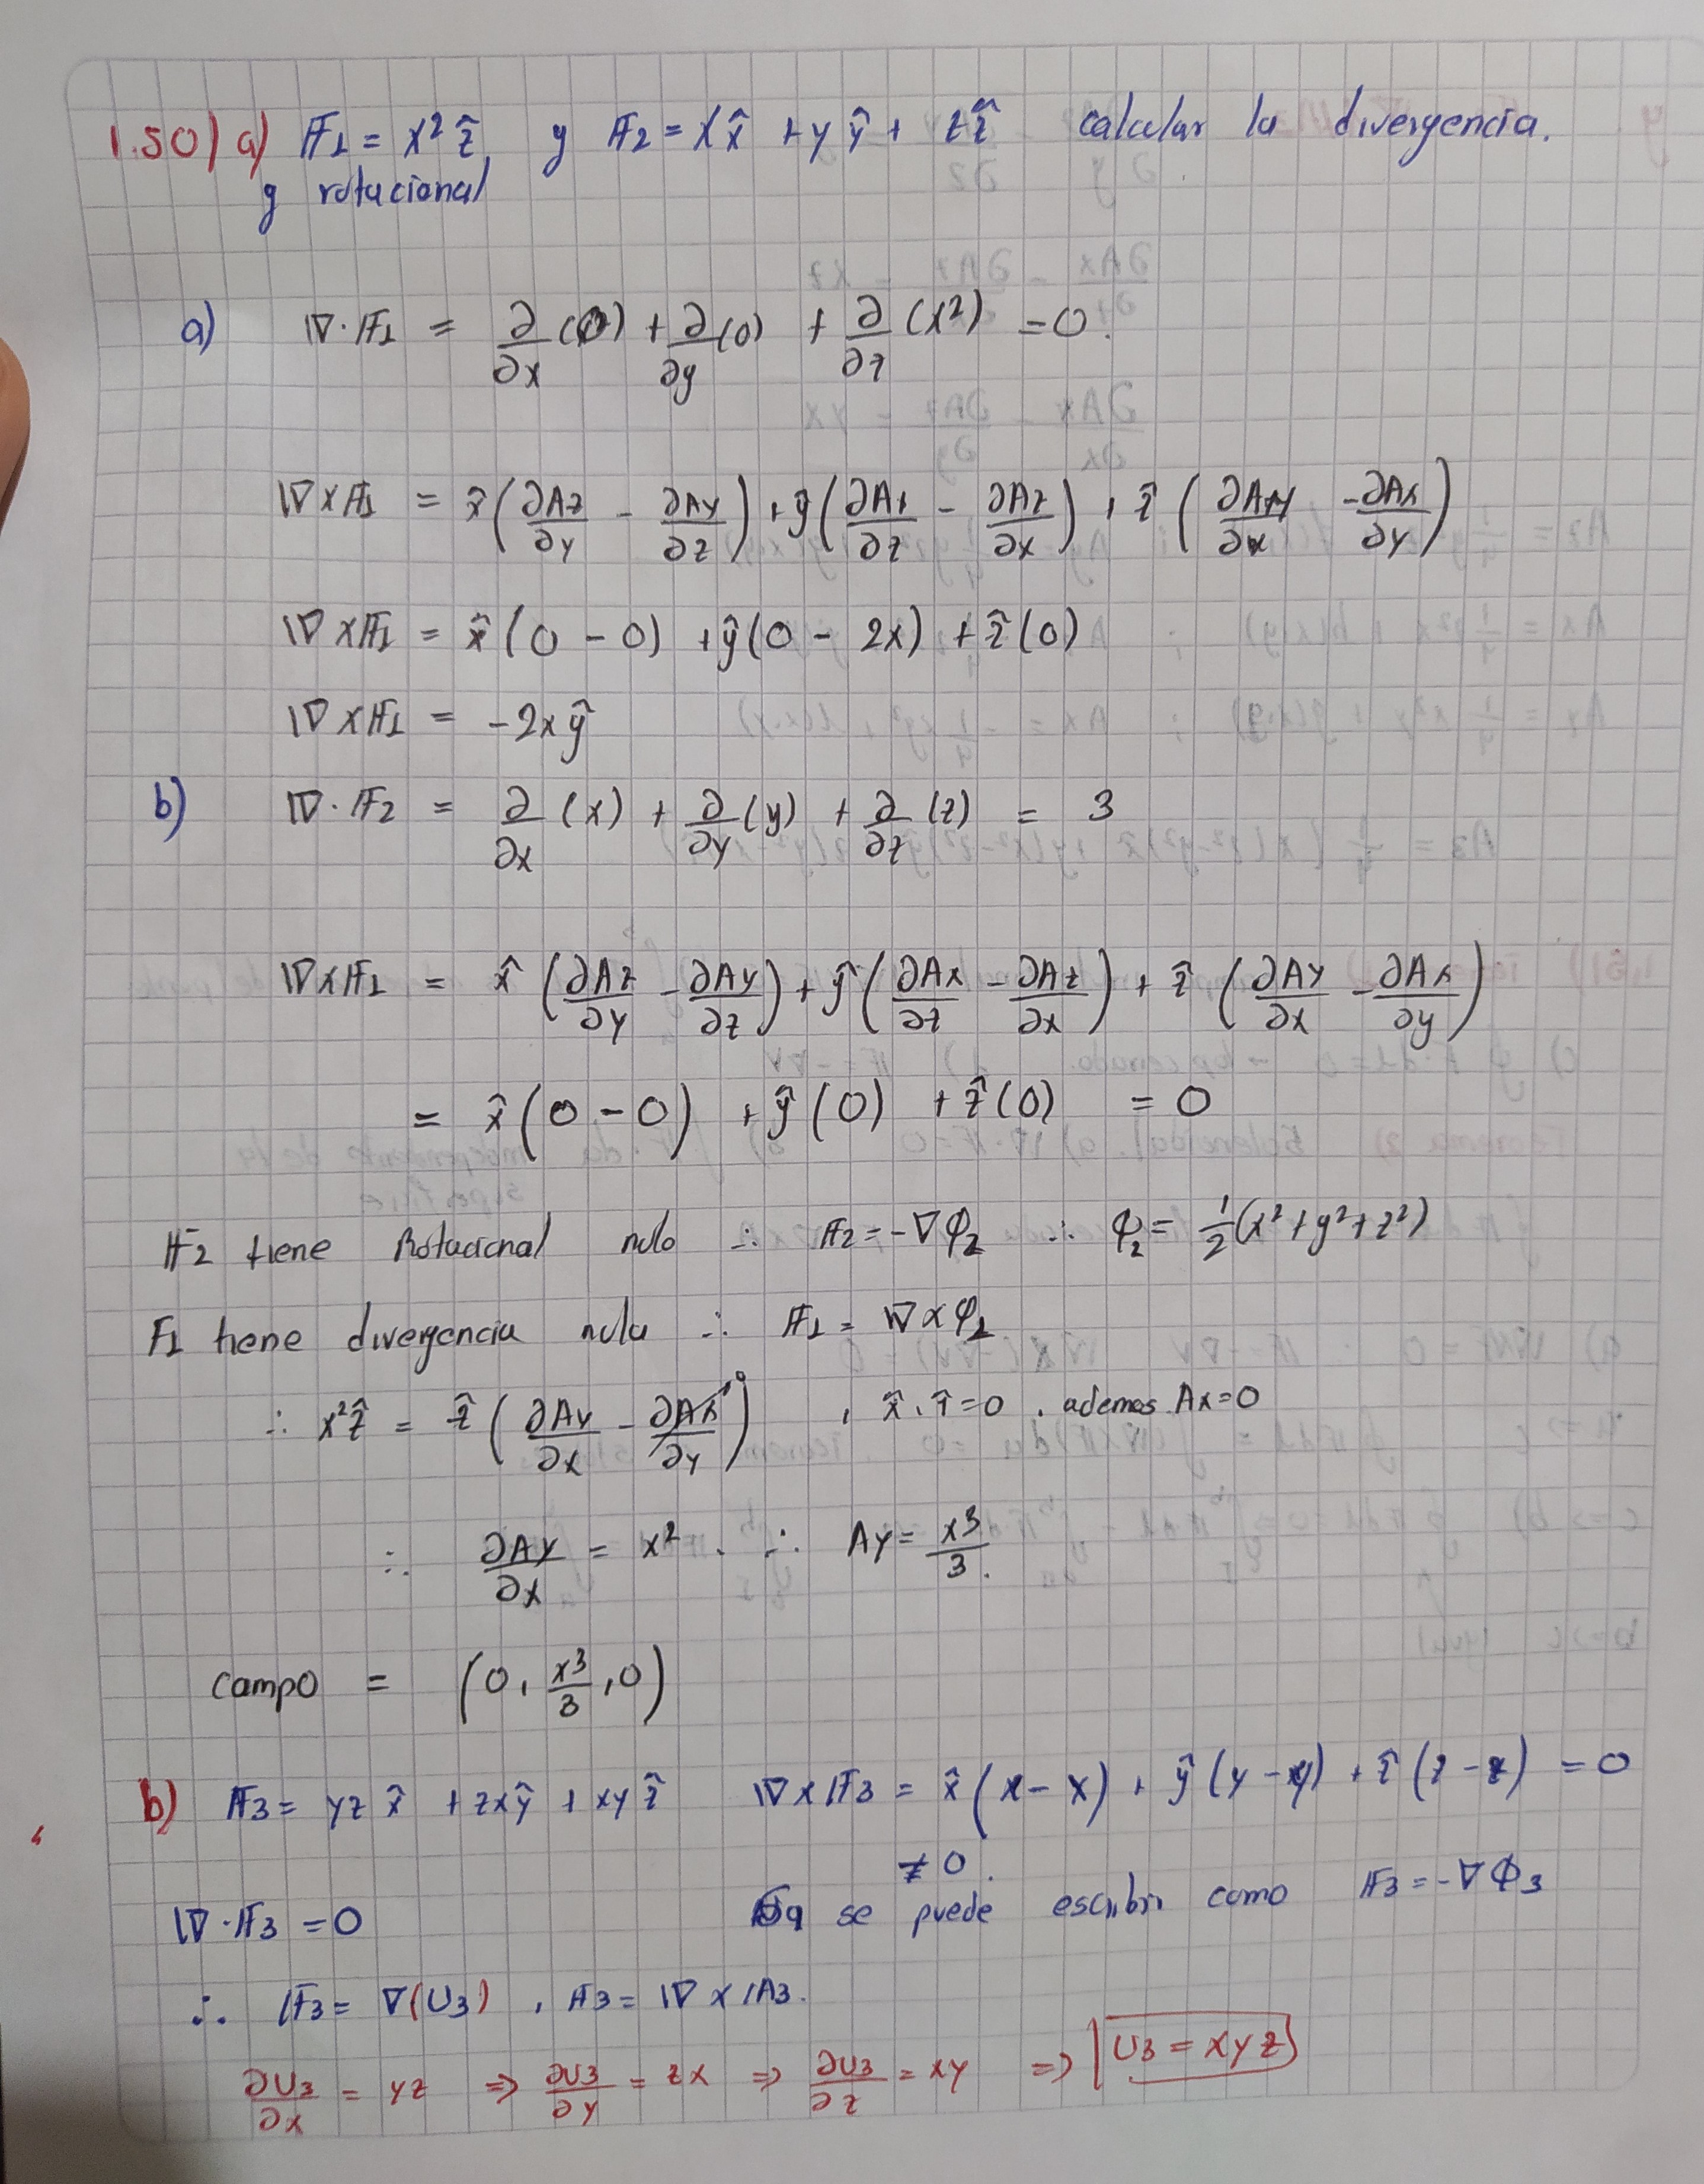 1.50) a) F₁ = x² ẑ, y F₂ = x x̂ + y ŷ + z ẑ calcular la divergencia.
y rotacional
a) ∇·F₁ = ∂/∂x (0) + ∂/∂y (0) + ∂/∂z (x²) = 0.
∇×F₁ = x̂ (∂Az/∂y - ∂Ay/∂z) + ŷ (∂Ax/∂z - ∂Az/∂x) + ẑ (∂Ay/∂x - ∂Ax/∂y)
∇×F₁ = x̂ (0 - 0) + ŷ (0 - 2x) + ẑ (0)
∇×F₁ = -2x ŷ
b) ∇·F₂ = ∂/∂x (x) + ∂/∂y (y) + ∂/∂z (z) = 3
∇×F₂ = x̂ (∂Az/∂y - ∂Ay/∂z) + ŷ (∂Ax/∂z - ∂Az/∂x) + ẑ (∂Ay/∂x - ∂Ax/∂y)
= x̂ (0 - 0) + ŷ (0) + ẑ (0) = 0
F₂ tiene Rotacional nulo ∴ F₂ = -∇φ₂ ∴ φ₂ = 1/2 (x² + y² + z²)
F₁ tiene divergencia nula ∴ F₁ = ∇×φ₁
∴ x² ẑ = ẑ (∂Ay/∂x - ∂Ax/∂y → 0) , x̂ · ẑ = 0 . ademas Ax = 0
∴ ∂Ay/∂x = x² . ∴ Ay = x³/3.
campo = (0, x³/3, 0)
b) F₃ = yz x̂ + zx ŷ + xy ẑ ∇×F₃ = x̂ (x - x) + ŷ (y - y) + ẑ (z - z) = 0
≠ 0.
∇·F₃ = 0 se puede escribir como F₃ = -∇Φ₃
∴ F₃ = ∇(U₃) , F₃ = ∇×A₃.
∂U₃/∂x = yz ⇒ ∂U₃/∂y = zx ⇒ ∂U₃/∂z = xy ⇒ U₃ = xyz